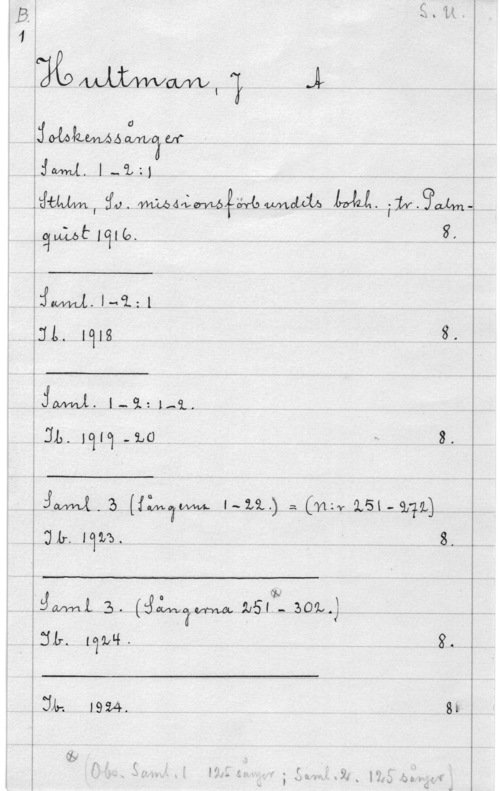 B. S. U.
1
Hultman, J A
Solskenssånger
Saml. 1-2:1
Sthlm, Sv. missionsförbundets bokh. ; tr. Palm-
quist 1916. 8.
Saml. 1-2:1
Ib. 1918 8.
Saml. 1-2: 1-2.
Ib. 1919-20 8.
Saml. 3 (Sångerna 1-22.) = (N:r 251-272)
Ib. 1923. 8.
Saml 3. (Sångerna 251*- 302.)
Ib. 1924. 8.
Ib. 1924. 8.
* (Obs. Saml. 1 125 sånger ; Saml. 2. 125 sånger)